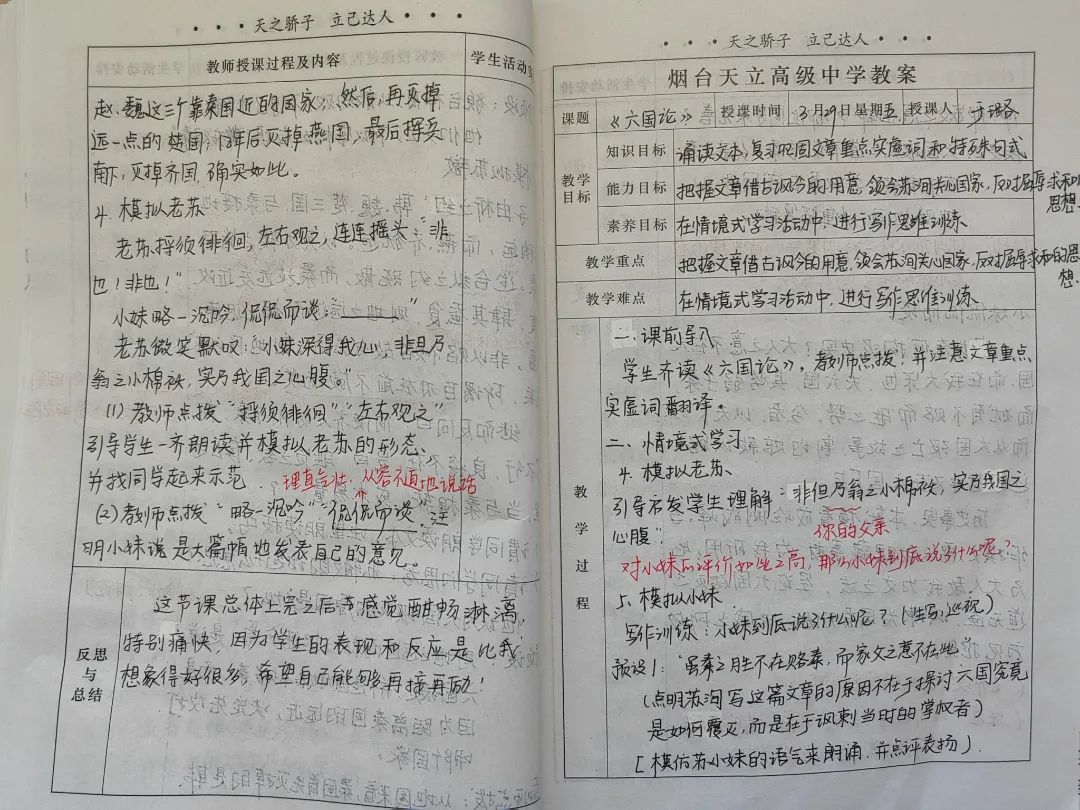 ···天之骄子 立己达人···
教师授课过程及内容
学生活动安
赵、魏这三个靠秦国近的国家；然后再灭掉
远一点的楚国，4年后灭掉燕国，最后挥兵
南下，灭掉齐国，确实如此。
4. 模拟老苏
老苏捋须徘徊，左右观之，连连摇头：“非
也！非也！”
小妹略一沉吟，侃侃而谈：“______”
老苏微笑默叹：“小妹深得我心，非但乃
翁之小棉袄，实乃我国之心腹。”
(1) 教师点拨“捋须徘徊”“左右观之”
引导学生一齐朗读并模拟老苏的形态，
并找同学起来示范．
理直气壮、从容不迫地说话
(2) 教师点拨“略一沉吟”“侃侃而谈”，注
明小妹说是大篇幅地发表自己的意见。
反思
与
总结
这节课总体上完之后，感觉酣畅淋漓，
特别痛快，因为学生的表现和反应是比我
想象得好很多，希望自己能够再接再励！
···天之骄子 立己达人···
烟台天立高级中学教案
课题 《六国论》 授课时间 3月29日星期五 授课人
教学
目标
知识目标 诵读文本，复习巩固文章重点实虚词和特殊句式
能力目标 把握文章借古讽今的用意，领会苏洵关心国家，反对屈辱求和的
思想．
素养目标 在情境式学习活动中，进行写作思维训练
教学重点 把握文章借古讽今的用意，领会苏洵关心国家，反对屈辱求和的思
想．
教学难点 在情境式学习活动中，进行写作思维训练．
教
学
过
程
一、课前导入
学生齐读《六国论》，教师点拨，并注意文章重点
实虚词翻译。
二、情境式学习
4. 模拟老苏、
引导启发学生理解：“非但乃翁之小棉袄，实乃我国之
心腹”
你的父亲
对小妹后评价如此之高，那么小妹到底说了什么呢？
5. 模拟小妹
写作训练：小妹到底说了什么呢？（生写，巡视）
预设1：“虽秦之胜不在赂秦，而家父之意不在此”
（点明苏洵写这篇文章的原因不在于探讨六国究竟
是如何覆灭，而是在于讽刺当时的掌权者）
[模仿苏小妹的语气来朗诵．并点评表扬）